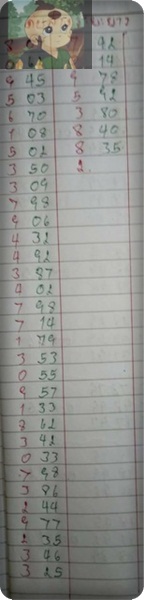 92
14
9 45 9 78
5 03 5 92
6 70 3 80
1 08 8 40
5 02 8 35
3 50 2
3 09
7 98
9 06
4 32
4 92
3 87
4 02
7 98
7 14
1 79
3 53
0 55
9 57
1 33
8 62
3 42
0 33
7 98
3 86
2 44
9 77
2 35
3 46
3 25